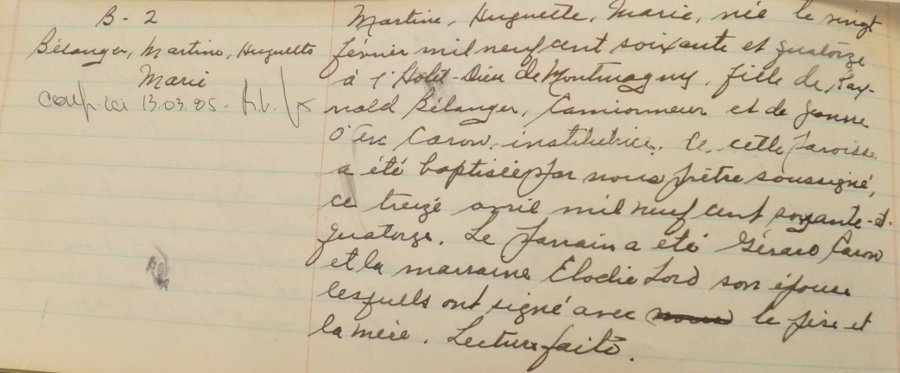 B - 2
Bélanger, Martine, Huguette
Marie
conf. ici 13.03.85 -
Martine, Huguette, Marie, née le vingt
février mil neuf cent soixante et quatorze
à l'Hotel-Dieu de Montmagny, fille de Ray-
nald Bélanger, camionneur et de Jeanne
D'Arc Caron, institutrice, de cette paroisse
a été baptisée par nous prêtre soussigné,
ce treize avril mil neuf cent soixante-et-
quatorze. Le parrain a été Gérard Caron
et la marraine Elodie Lord son épouse
lesquels ont signé avec nous le père et
la mère. Lecture faite.